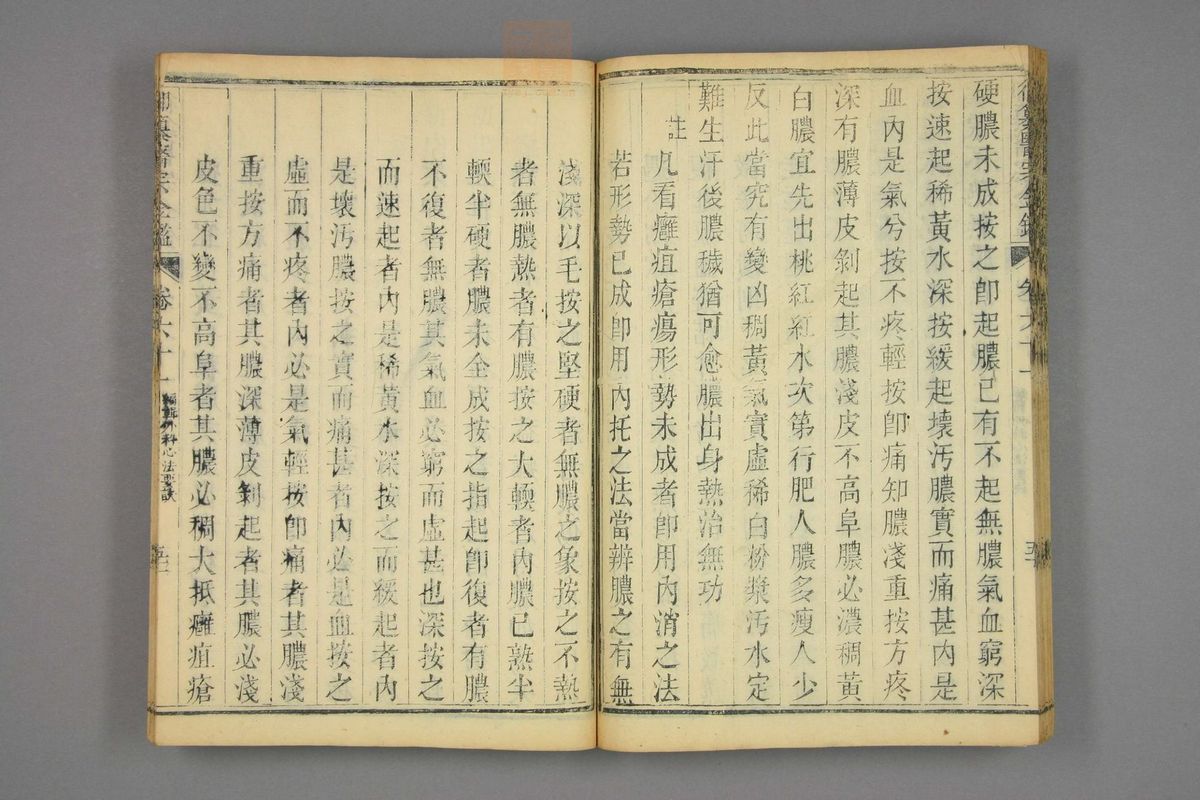 硬膿未成按之卽起膿已有不起無膿氣血窮深
按速起稀黃水深按緩起壞汚膿實而痛甚内是
血内是氣兮按不疼輕按卽痛知膿淺重按方疼
深有膿薄皮剝起其膿淺皮不高阜膿必濃稠黃
白膿宜先出桃紅紅水次第行肥人膿多瘦人少
反此當究有變凶稠黃氣實虛稀白粉漿汚水定
難生汗後膿穢猶可愈膿出身熱治無功
註
凡看癰疽瘡瘍形勢未成者卽用内消之法
若形勢已成卽用内托之法當辨膿之有無
淺深以毛按之堅硬者無膿之象按之不熱
者無膿熱者有膿按之大輭者内膿已熟半
輭半硬者膿未全成按之指起卽復者有膿
不復者無膿其氣血必窮而虛甚也深按之
而速起者内是稀黃水深按之而緩起者内
是壞汚膿按之實而痛甚者内必是血按之
虛而不疼者内必是氣輕按卽痛者其膿淺
重按方痛者其膿深薄皮剝起者其膿必淺
皮色不變不高阜者其膿必稠大抵癰疽瘡
御纂醫宗金鑑
卷六十一
編輯外科心法要訣